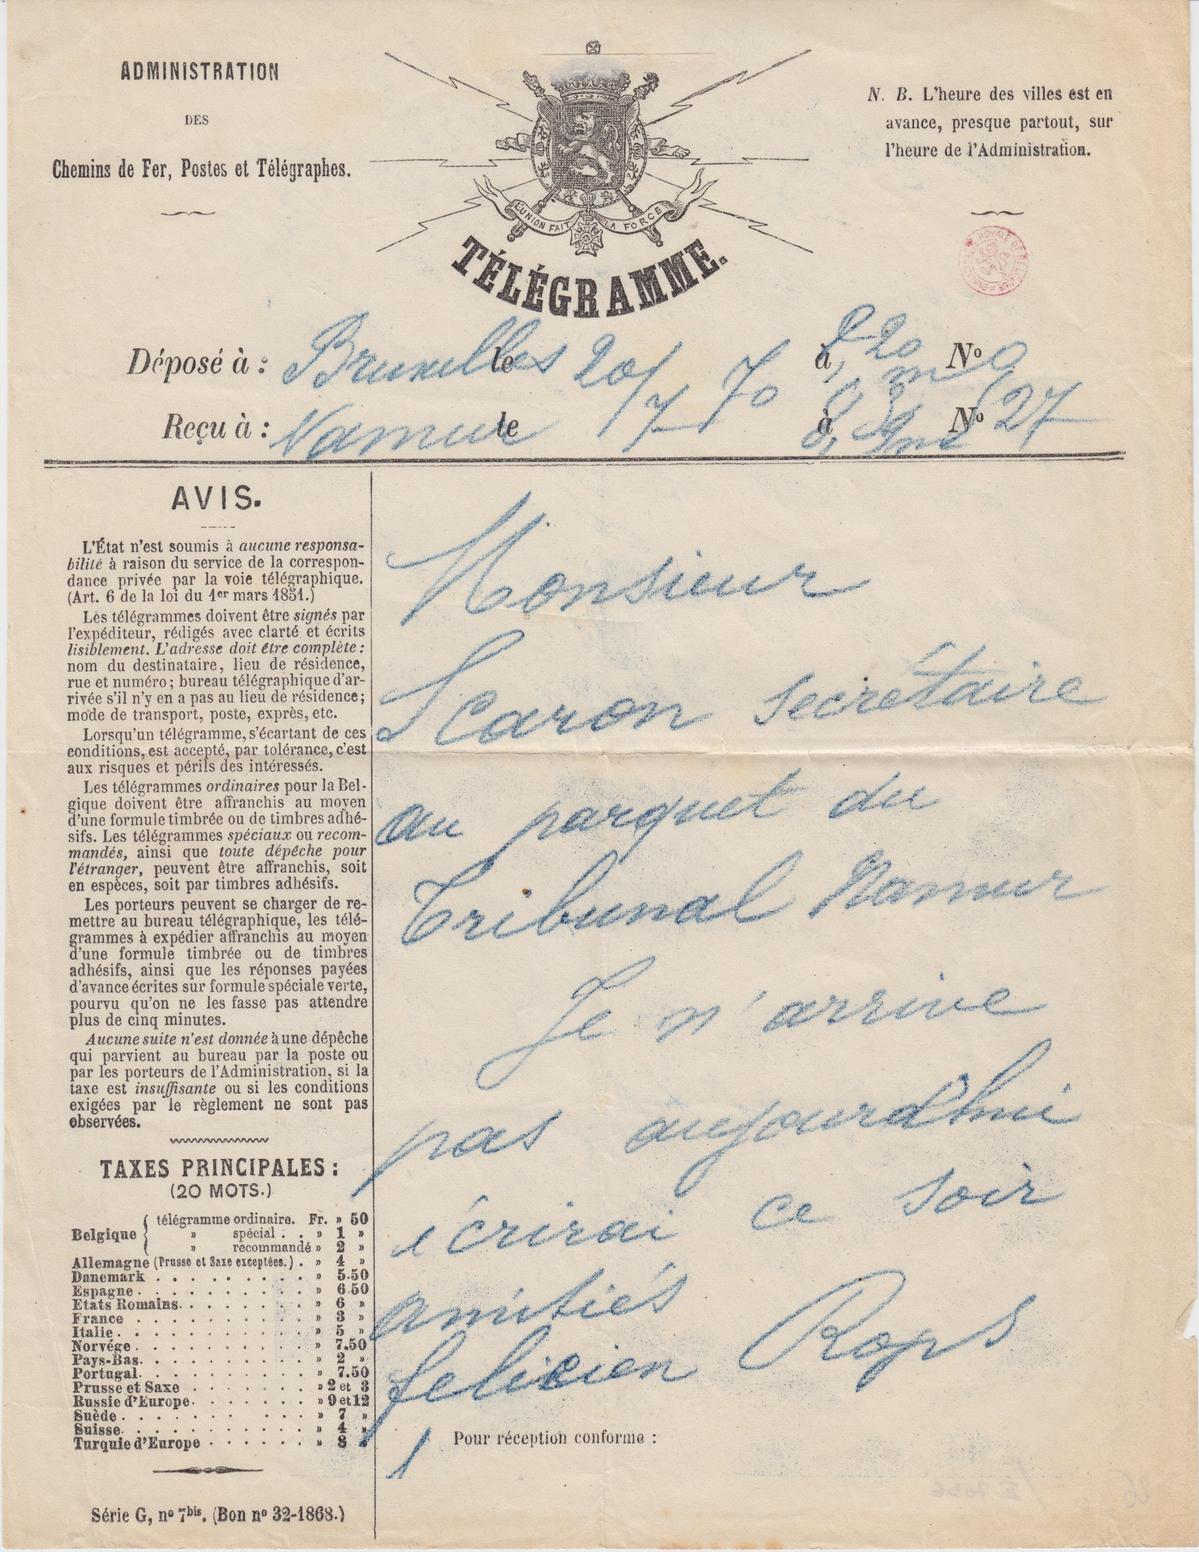 ADMINISTRATION
DES
Chemins de Fer, Postes et Télégraphes.
L'UNION FAIT LA FORCE
TÉLÉGRAMME.
N. B. L'heure des villes est en
avance, presque partout, sur
l'heure de l'Administration.
Déposé à : Bruxelles le 20/7 70 à 8,20 m N°
Reçu à : Namur le à 8, m N° 27
AVIS.
L'État n'est soumis à aucune responsa-
bilité à raison du service de la correspon-
dance privée par la voie télégraphique.
(Art. 6 de la loi du 1er mars 1851.)
Les télégrammes doivent être signés par
l'expéditeur, rédigés avec clarté et écrits
lisiblement. L'adresse doit être complète :
nom du destinataire, lieu de résidence,
rue et numéro ; bureau télégraphique d'ar-
rivée s'il n'y en a pas au lieu de résidence ;
mode de transport, poste, exprès, etc.
Lorsqu'un télégramme, s'écartant de ces
conditions, est accepté, par tolérance, c'est
aux risques et périls des intéressés.
Les télégrammes ordinaires pour la Bel-
gique doivent être affranchis au moyen
d'une formule timbrée ou de timbres adhé-
sifs. Les télégrammes spéciaux ou recom-
mandés, ainsi que toute dépêche pour
l'étranger, peuvent être affranchis, soit
en espèces, soit par timbres adhésifs.
Les porteurs peuvent se charger de re-
mettre au bureau télégraphique, les télé-
grammes à expédier affranchis au moyen
d'une formule timbrée ou de timbres
adhésifs, ainsi que les réponses payées
d'avance écrites sur formule spéciale verte,
pourvu qu'on ne les fasse pas attendre
plus de cinq minutes.
Aucune suite n'est donnée à une dépêche
qui parvient au bureau par la poste ou
par les porteurs de l'Administration, si la
taxe est insuffisante ou si les conditions
exigées par le règlement ne sont pas
observées.
TAXES PRINCIPALES :
(20 MOTS.)
Belgique { télégramme ordinaire. Fr. » 50
» spécial . . » 1 »
» recommandé » 2 »
Allemagne (Prusse et Saxe exceptées.) . » 4 »
Danemark . . . . . . . . . » 5.50
Espagne . . . . . . . . . . » 6.50
Etats Romains. . . . . . . . » 6 »
France . . . . . . . . . . » 3 »
Italie . . . . . . . . . . . » 5 »
Norvége . . . . . . . . . . » 7.50
Pays-Bas. . . . . . . . . . » 2 »
Portugal . . . . . . . . . . » 7.50
Prusse et Saxe . . . . . . » 2 et 3
Russie d'Europe. . . . . . . » 9 et 12
Suède . . . . . . . . . . . » 7 »
Suisse. . . . . . . . . . . » 4 »
Turquie d'Europe . . . . . . » 8 »
Série G, n° 7bis. (Bon n° 32-1868.)
Monsieur
Scaron secrétaire
au parquet du
Tribunal Namur
Je n'arrive
pas aujourd'hui
écrirai ce soir
amitiés
felicien Rops
Pour réception conforme :